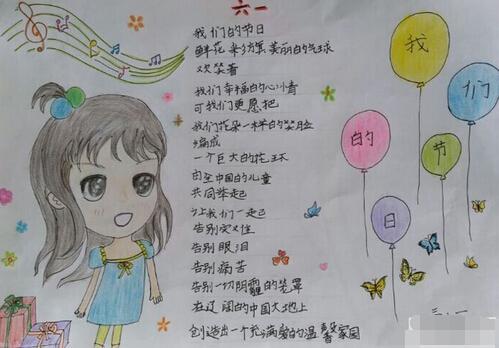 六一
我们的节日
鲜花 彩旗 美丽的气球
欢笑着
我们幸福的心情
可我们更愿把
我们花朵一样的笑脸
编成
一个巨大的花环
由全中国的儿童
共同举起
让我们一起
告别灾难
告别眼泪
告别病苦
告别一切阴霾的笼罩
在辽阔的中国大地上
创造出一个充满爱的温馨家园
我
们
的
节
日
三.一